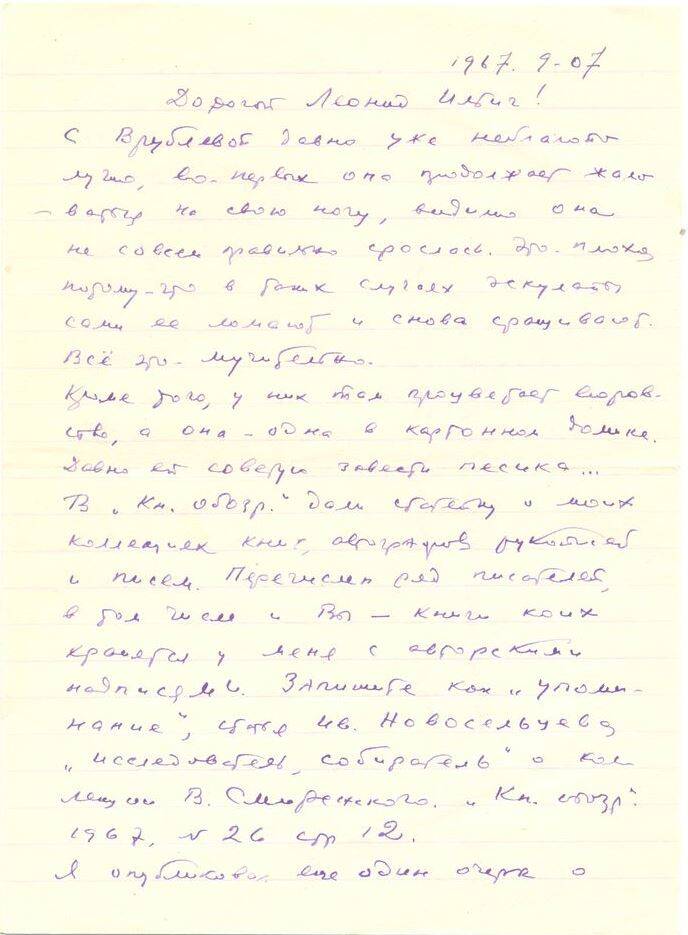 1967. 9-07
Дорогой Леонид Ильич!
С Врублевой давно уже неблагопо-
лучно, во-первых она продолжает жало-
– ваться на свою ногу, видимо она
не совсем правильно срослась. Это-плохо,
потому-что в таких случаях эскулапы
сами ее ломают и снова сращивают.
Всё это-мучительно.
Кроме того, у них там процветает воров-
ство, а она-одна в картонном домике.
Давно ей советую завести песика...
В „Кн. обозр." дали статейку о моих
коллекциях книг, автографов рукописей
и писем. Перечислен ряд писателей,
в том числе и Вы — книги коих
хранятся у меня с авторскими
надписями. Запишите как „упоми-
нание", статья Ив. Новосельцева
„Исследователь, собиратель" о кол
лекции В. Смиренского. „Кн. обозр".
1967, № 26 стр 12.
Я опубликовал еще один очерк о